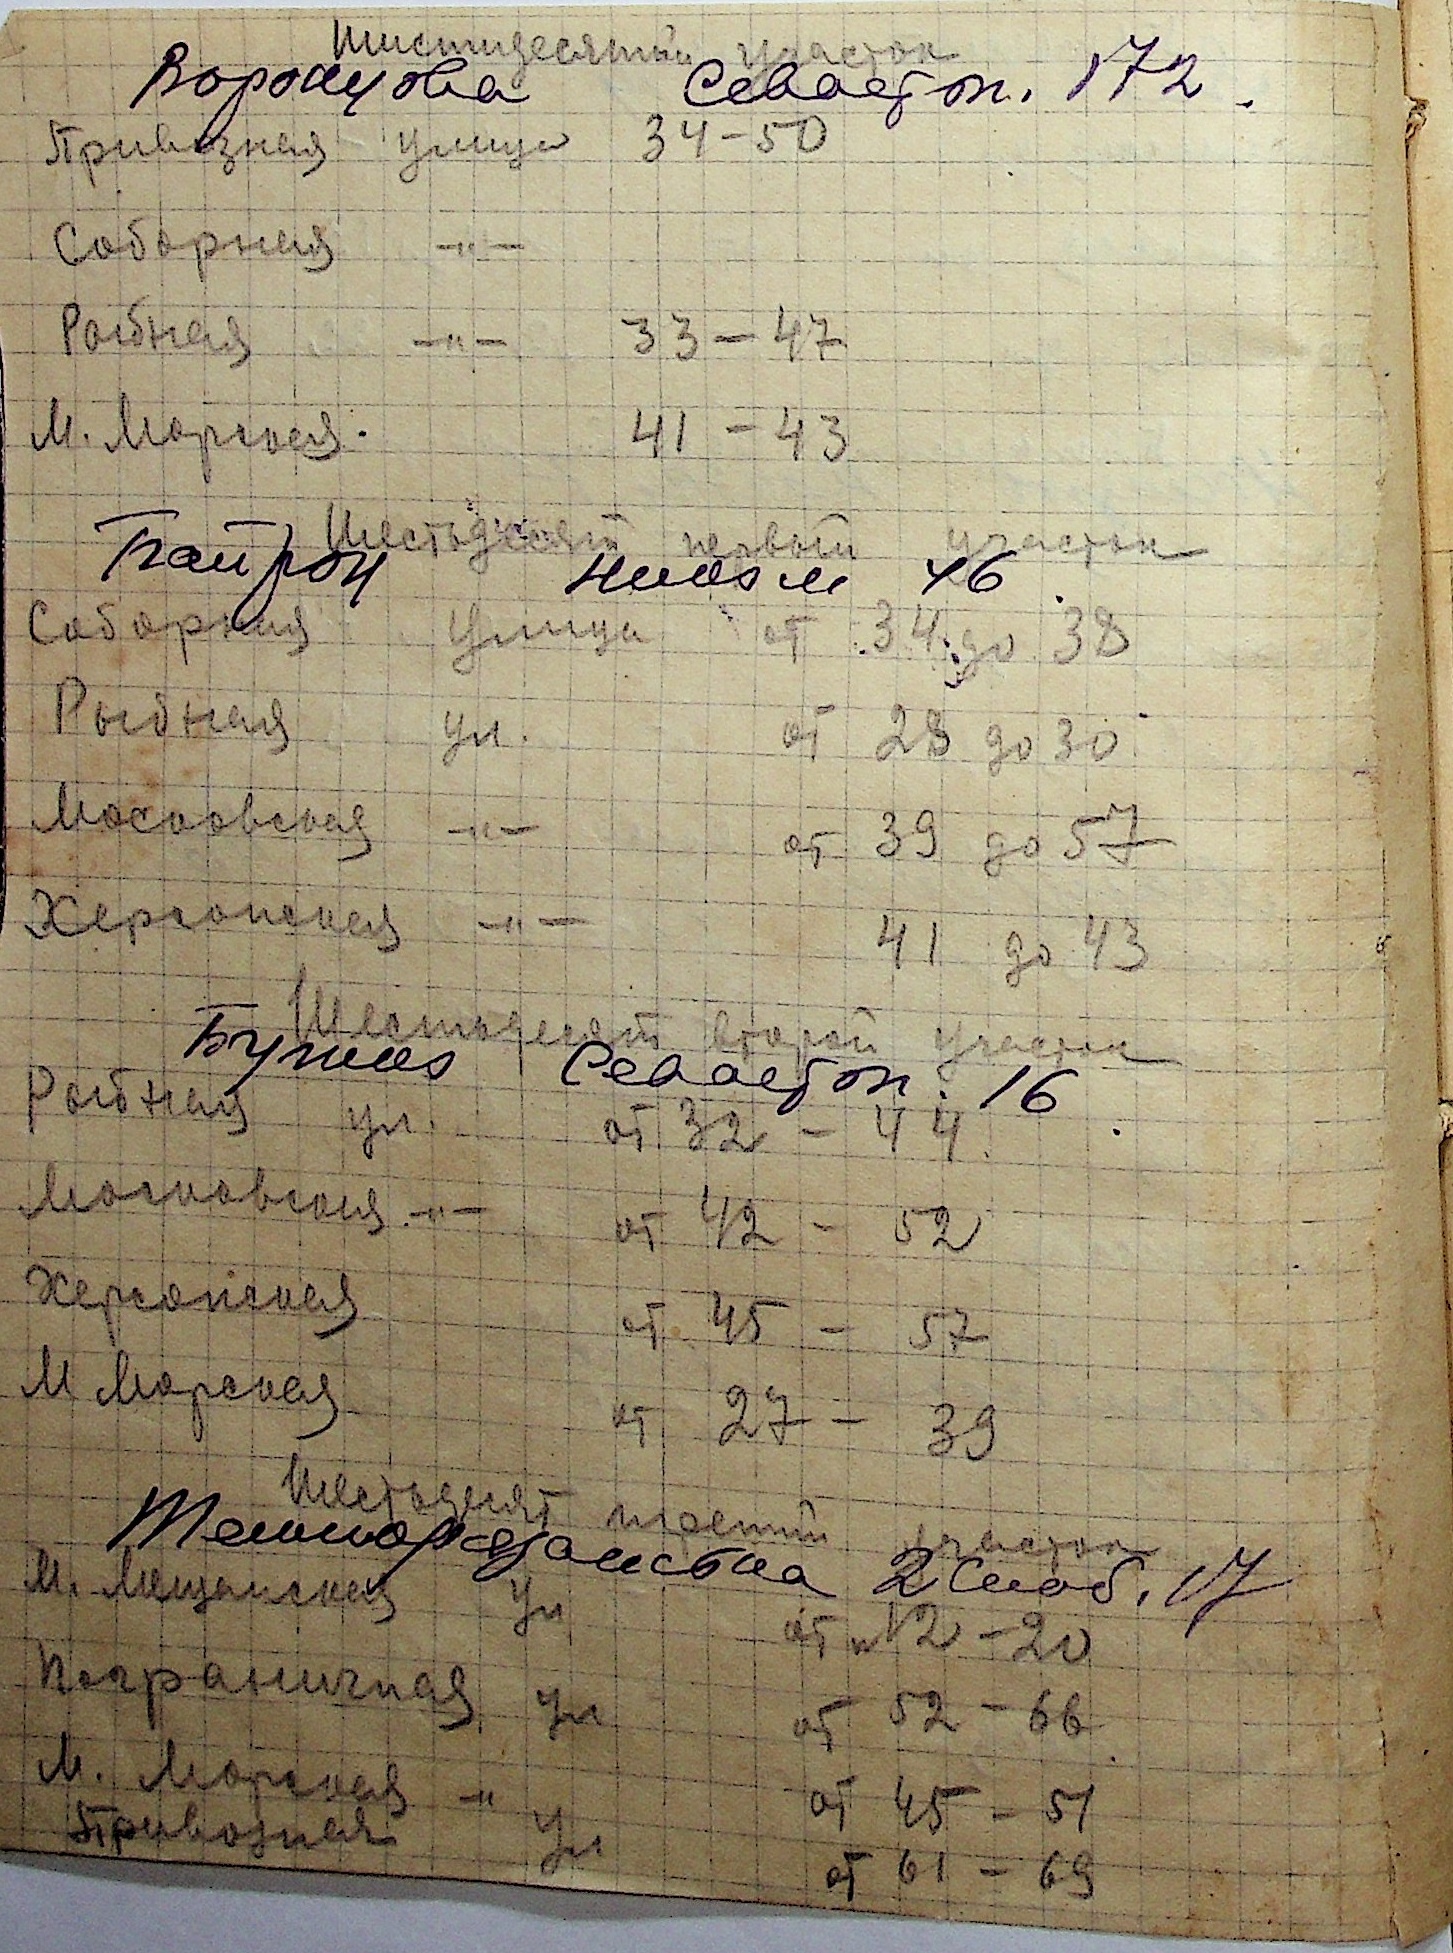 Шистидесятый участок
Воронцова Севастоп. 172.
Привозная улица 34-50
Соборная -"-
Рыбная -"- 33-47
М. Морская. 41-43
Шестьдесят первый участок
46.
Соборная улица от 34 до 38
Рыбная ул. от 28 до 30
Московская -"- от 39 до 57
Херсонская -"- 41 до 43
Шестьдесят второй участок
Севастоп. 16.
Рыбная ул. от 32 - 44
Московская -"- от 42 - 52
Херсонская от 45 - 57
М Морская от 27 - 39
Шестьдесят третий участок
2 Слоб. 17
М. Мещанская ул от 12 - 20
Пограничная ул от 52 - 66
М. Морская -" от 45 - 51
Привозная ул от 61 - 69